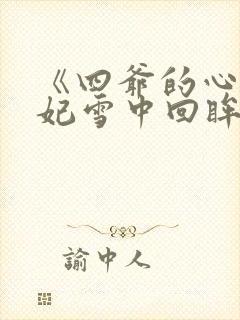 《四爷的心
妃雪中回眸
諭中人